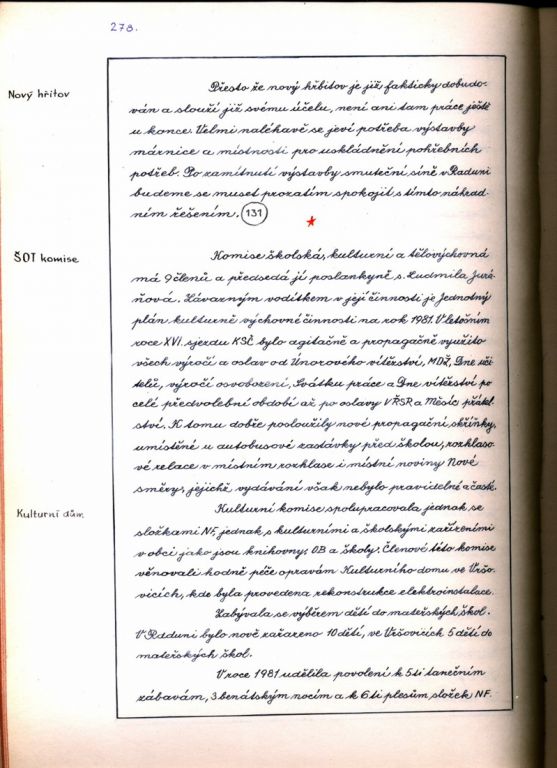 278.
Nový hřitov
Přesto že nový hřbitov je již fakticky dobudo-
ván a slouží již svému účelu, není ani tam práce ještě
u konce. Velmi naléhavě se jeví potřeba výstavby
márnice a místnosti pro uskládnění pohřebních
potřeb. Po zamítnutí výstavby smuteční síně v Raduni
budeme se muset prozatím spokojit s tímto náhrad-
ním řešením. 131
ŠOT komise
Komise školská, kulturní a tělovýchovná
má 9 členů a předsedá jí poslankyně s. Ludmila Jurá-
ňová. Závazným vodítkem v její činnosti je Jednotný
plán kulturně výchovné činnosti na rok 1981. V letošním
roce XVI. sjezdu KSČ bylo agitačně a propagačně využito
všech výročí a oslav od Únorového vítězství, MDŽ, Dne uči-
telů, výročí osvobození, Svátku práce a Dne vítězství po
celé předvolební období až po oslavy VŘSR a Měsíc přátel-
ství. K tomu dobře posloužily nové propagační skříňky,
umístěné u autobusové zastávky před školou, rozhlaso-
vé relace v místním rozhlase i místní noviny Nové
směry, jejichž vydávání však nebylo pravidelné a časté.
Kulturní dům
Kulturní komise spolupracovala jednak se
složkami NF, jednak s kulturními a školskými zařízeními
v obci jako jsou knihovny, OB a školy. Členové této komise
věnovali hodně péče opravám Kulturního domu ve Vršo-
vicích, kde byla provedena rekonstrukce elektroinstalace.
Zabývala se výběrem dětí do mateřských škol.
V Raduni bylo nově zařazeno 10 dětí, ve Vršovicích 5 dětí do
mateřských škol.
V roce 1981 udělila povolení k 5ti tanečním
zábavám, 3 benátským nocím a k 6ti plesům složek NF.